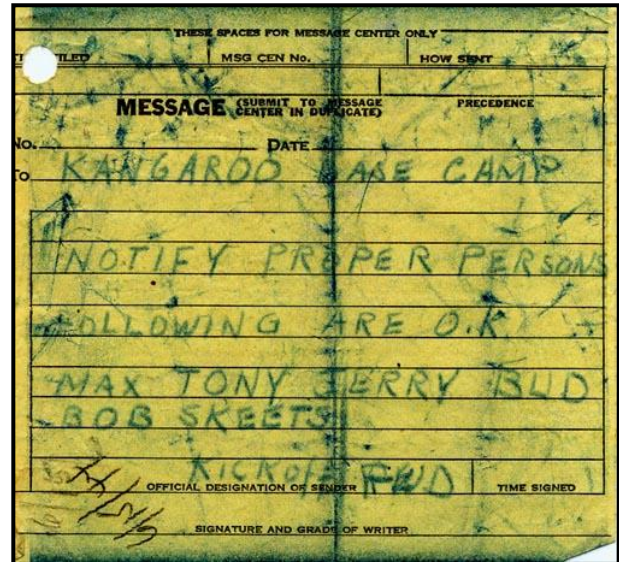 THESE SPACES FOR MESSAGE CENTER ONLY
MSG CEN No. HOW SENT
MESSAGE (SUBMIT TO MESSAGE CENTER IN DUPLICATE) PRECEDENCE
No. DATE
To KANGAROO BASE CAMP
NOTIFY PROPER PERSONS
FOLLOWING ARE O.K.
MAX TONY JERRY BUD
BOB SKEETS
KICKOFF FWD
OFFICIAL DESIGNATION OF SENDER TIME SIGNED
SIGNATURE AND GRADE OF WRITER